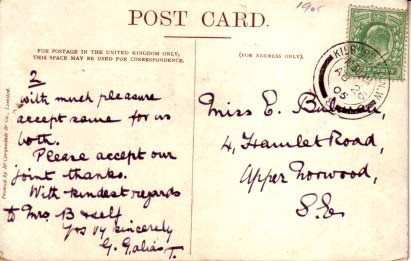 1905
POST CARD.
FOR POSTAGE IN THE UNITED KINGDOM ONLY,
THIS SPACE MAY BE USED FOR CORRESPONDENCE.
(FOR ADDRESS ONLY.)
2
With much pleasure
accept same for us
both.
Please accept our
joint thanks.
With kindest regards
to Mrs. B & self
Yrs vy sincerely
G.
Miss E.
4, Hamlet Road,
Upper Norwood,
S.E.
Printed by McCorquodale & Co., Limited.
05